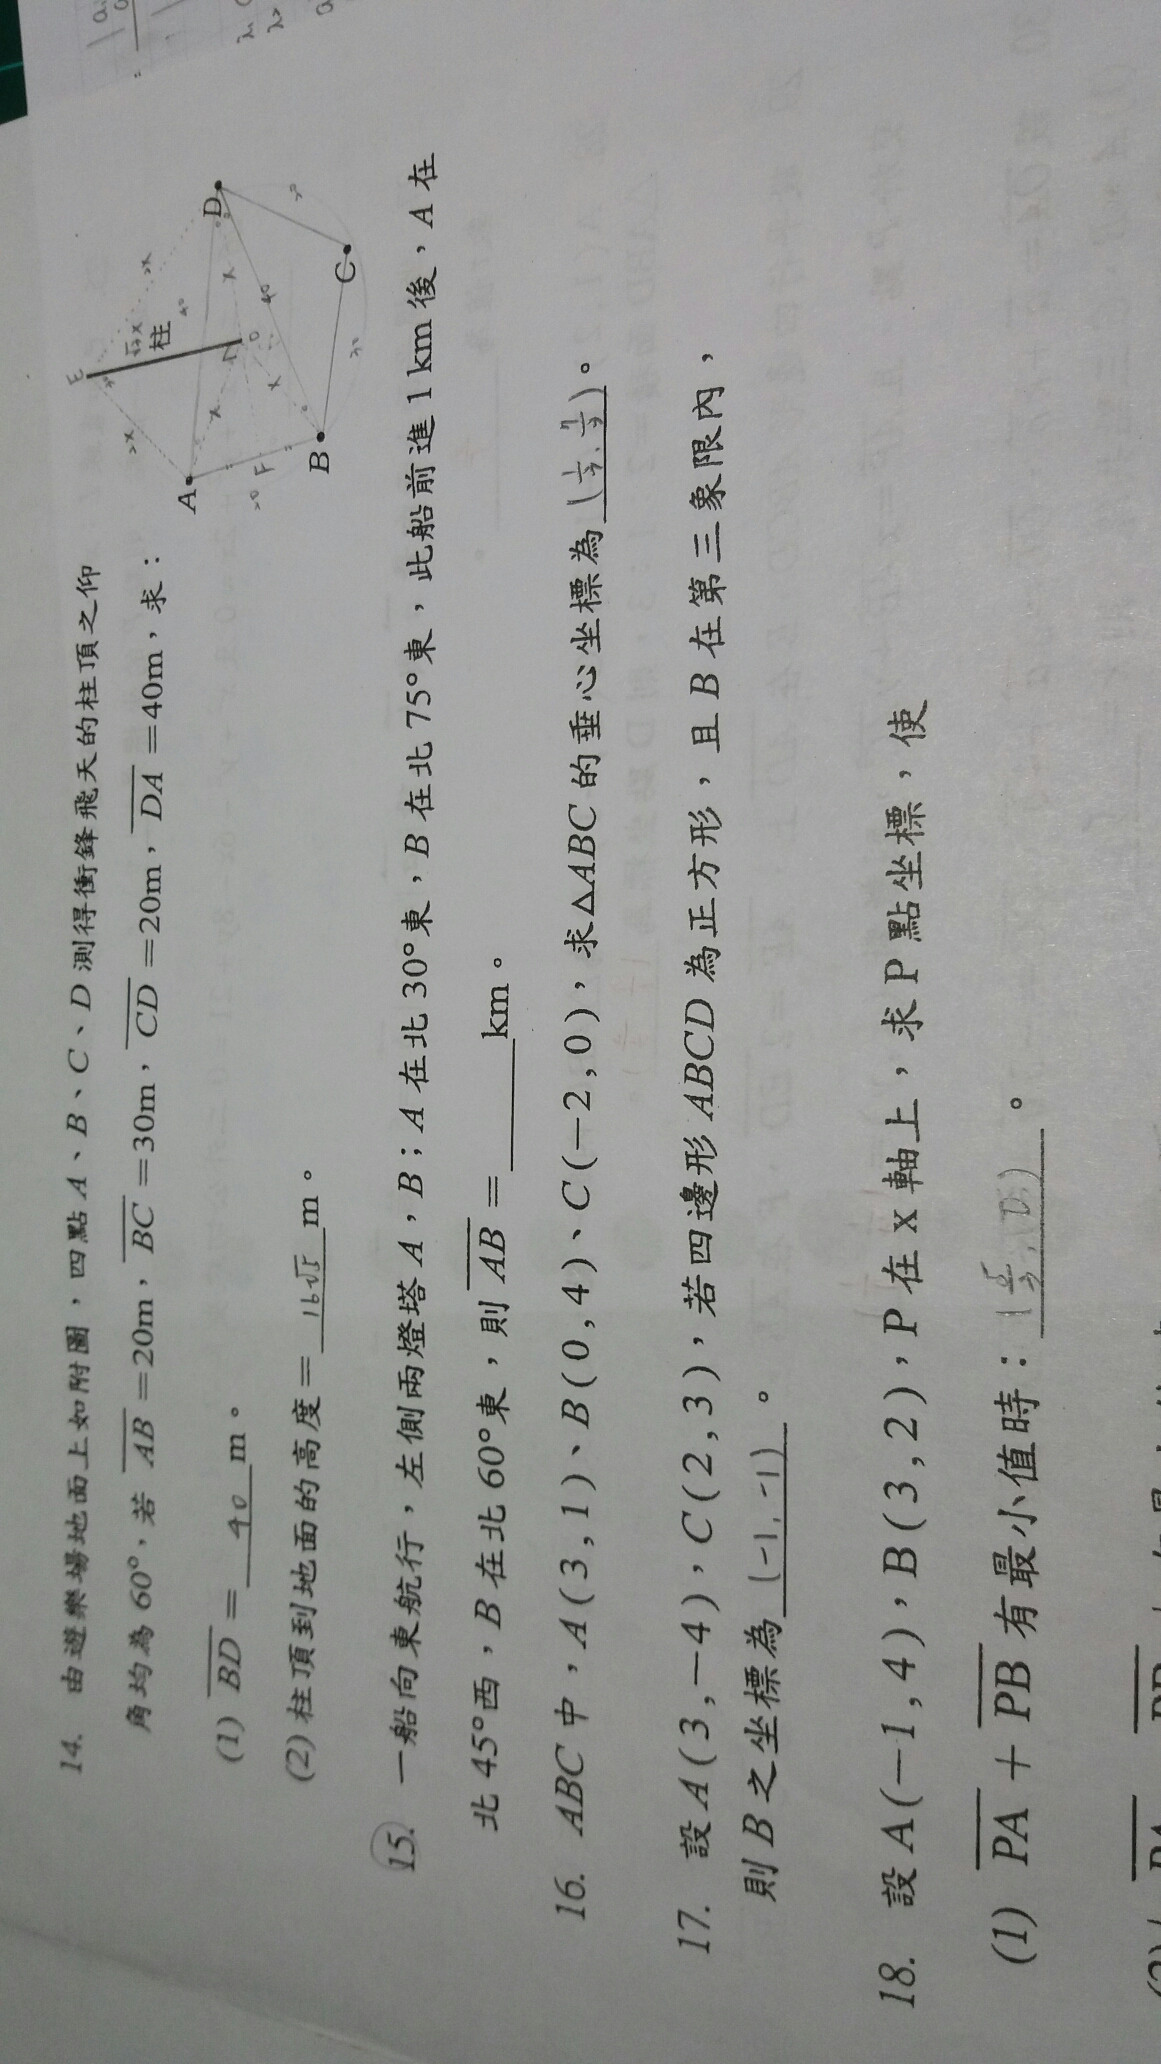 14. 由遊樂場地面上如附圖，四點A、B、C、D測得衝鋒飛天的柱頂之仰
角均為60°，若AB=20m，BC=30m，CD=20m，DA=40m，求：
(1) BD= 40 m。
(2) 柱頂到地面的高度= 16√5 m。
E
√3x
柱
2x
2x
40
A
D
x
x
x
O
40
20
F
B
C
15. 一船向東航行，左側兩燈塔A，B；A在北30°東，B在北75°東，此船前進1km後，A在
北45°西，B在北60°東，則AB=      km。
16. ABC中，A(3,1)、B(0,4)、C(−2,0)，求△ABC的垂心坐標為
17. 設A(3,−4)，C(2,3)，若四邊形ABCD為正方形，且B在第三象限內，
則B之坐標為 (-1,-1) 。
18. 設A(−1,4)，B(3,2)，P在x軸上，求P點坐標，使
(1) PA+PB有最小值時：